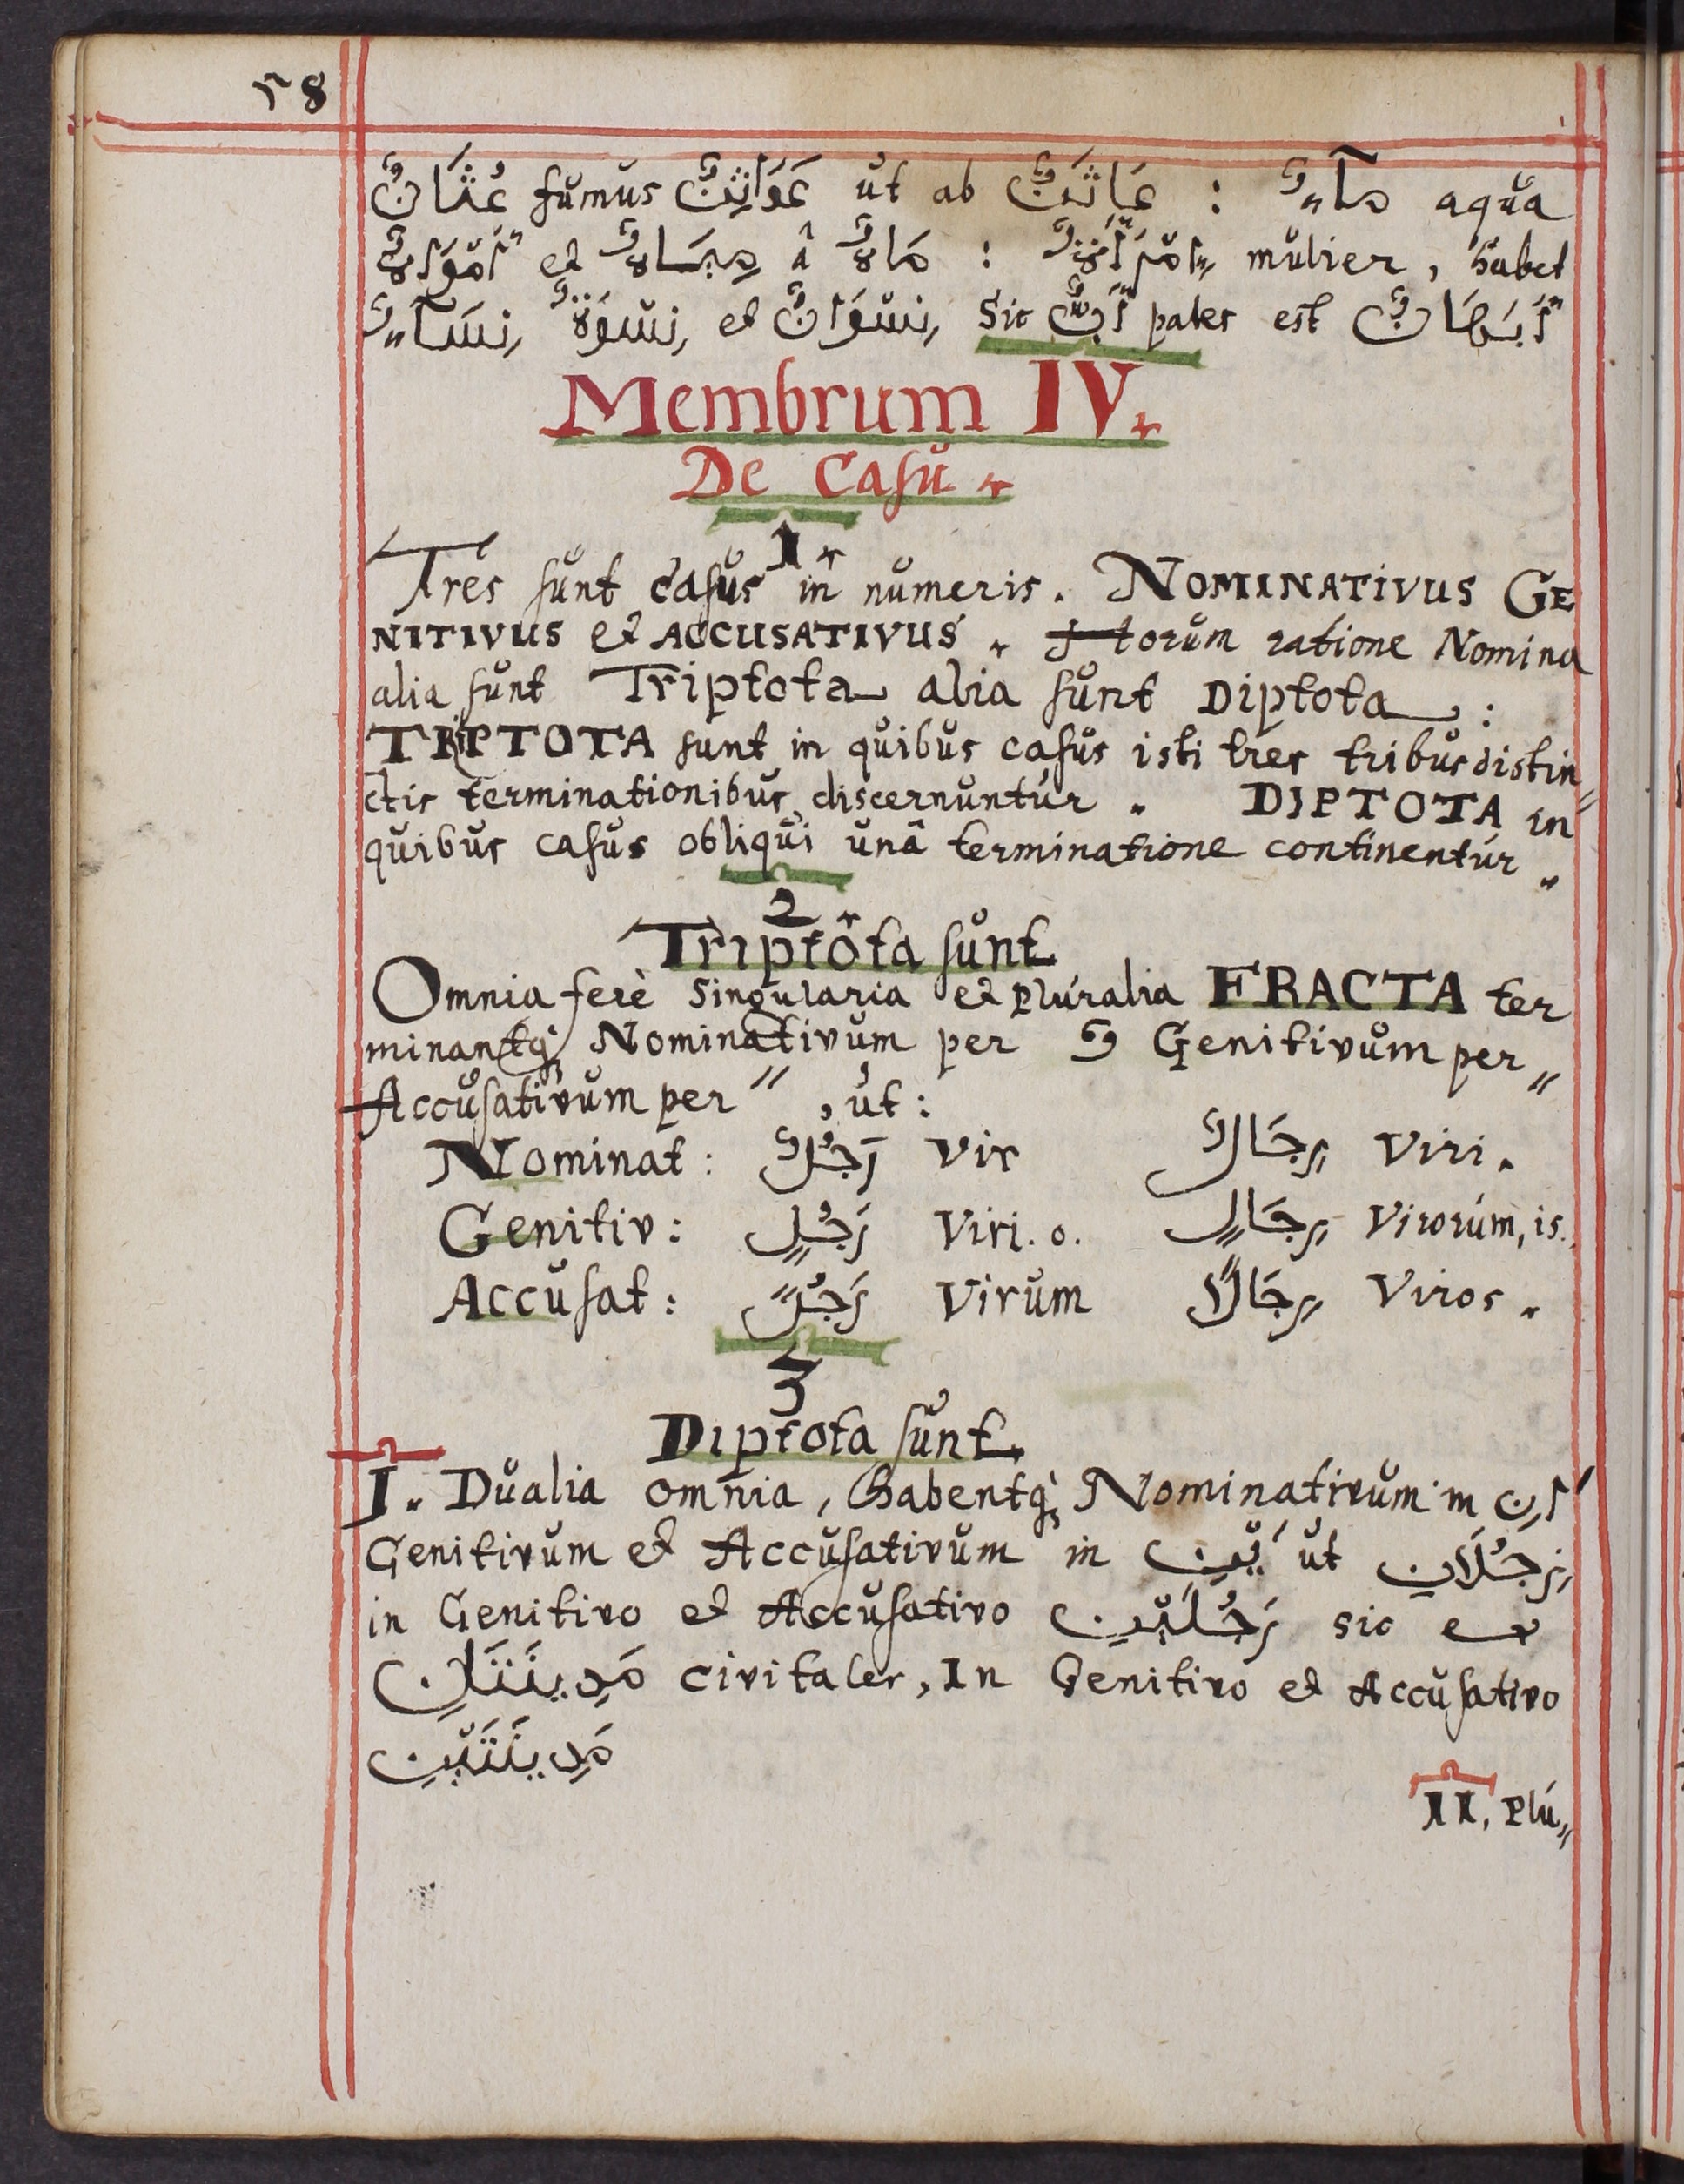 58
عُثَانٌ fumus عَوَاثِنٌ ut ab عَاثَنٌ : مآءٌ aqua
أَمْوَاهٌ et مِيَاهٌ â مَاهٌ : إمْرَأَةٌ mulier, habet
نِسَآءٌ نِسْوَةٌ et نِسْوَانٌ Sic أَبٌ pater est
Membrum IV.
De Casu.
1.
Tres sunt casus in numeris. NOMINATIVUS GE
NITIVUS et ACCUSATIVUS. Horum ratione Nomina
alia sunt Triptota alia sunt Diptota:
TRIPTOTA sunt in quibus casus isti tres tribus distin„
ctis terminationibus discernuntur. DIPTOTA in
quibus casus obliqui unâ terminatione continentur„
2.
Triptota sunt
Omnia ferè Singularia et pluralia FRACTA ter
minantq; Nominativum per ٌ Genitivum per ٍ
Accusativum per ً, ut:
Nominat: رَجُلٌ Vir رِجَالٌ Viri.
Genitiv: رَجُلٍ Viri. o. رِجَالٍ Virorum, is.
Accusat: رَجُلً Virum رِجَالًا Viros.
3
Diptota sunt.
I. Dualia omnia, habentq; Nominativum in َانِ
Genitivum et Accusativum in َيْنِ ut رَجُلَانِ
in Genitivo et Accusativo رَجُلَيْنِ sic
مَدِينَتَانِ civitates, In Genitivo et Accusativo
مَدِينَتَيْنِ
II, Plu„